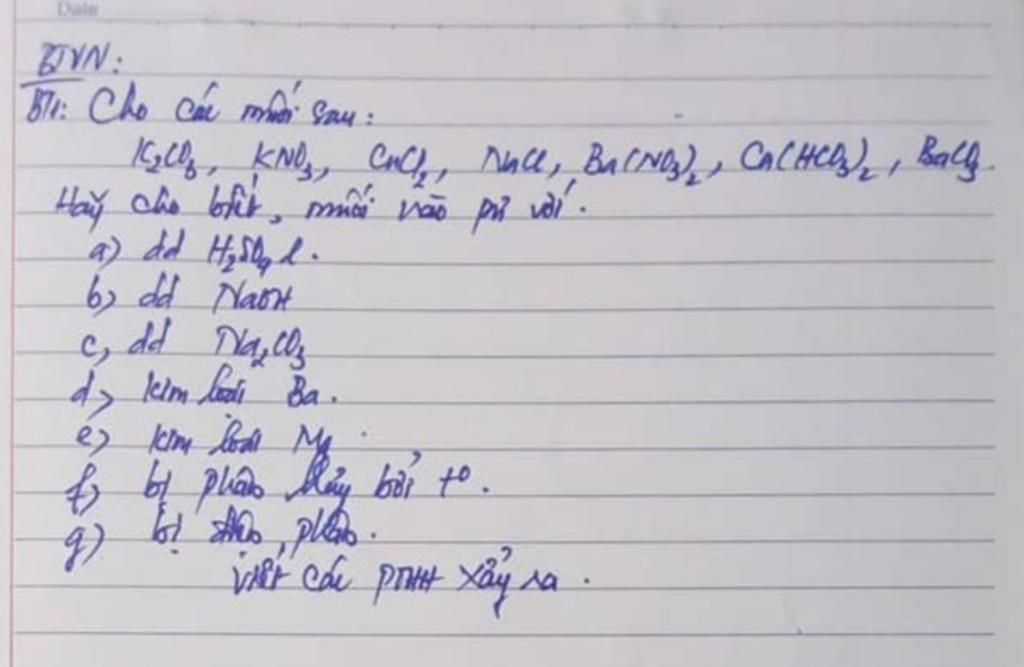 Date
BTVN:
BT1: Cho các muối sau:
K₂CO₃, KNO₃, CuCl₂, NaCl, Ba(NO₃)₂, Ca(HCO₃)₂, BaCO₃.
Hãy cho biết, muối nào pứ với.
a) dd H₂SO₄ l.
b) dd NaOH
c, dd Na₂CO₃
d) kim loại Ba.
e) kim loại Mg.
f) bị phân hủy bởi t⁰.
g) bị điện phân.
viết các PTHH xảy ra.